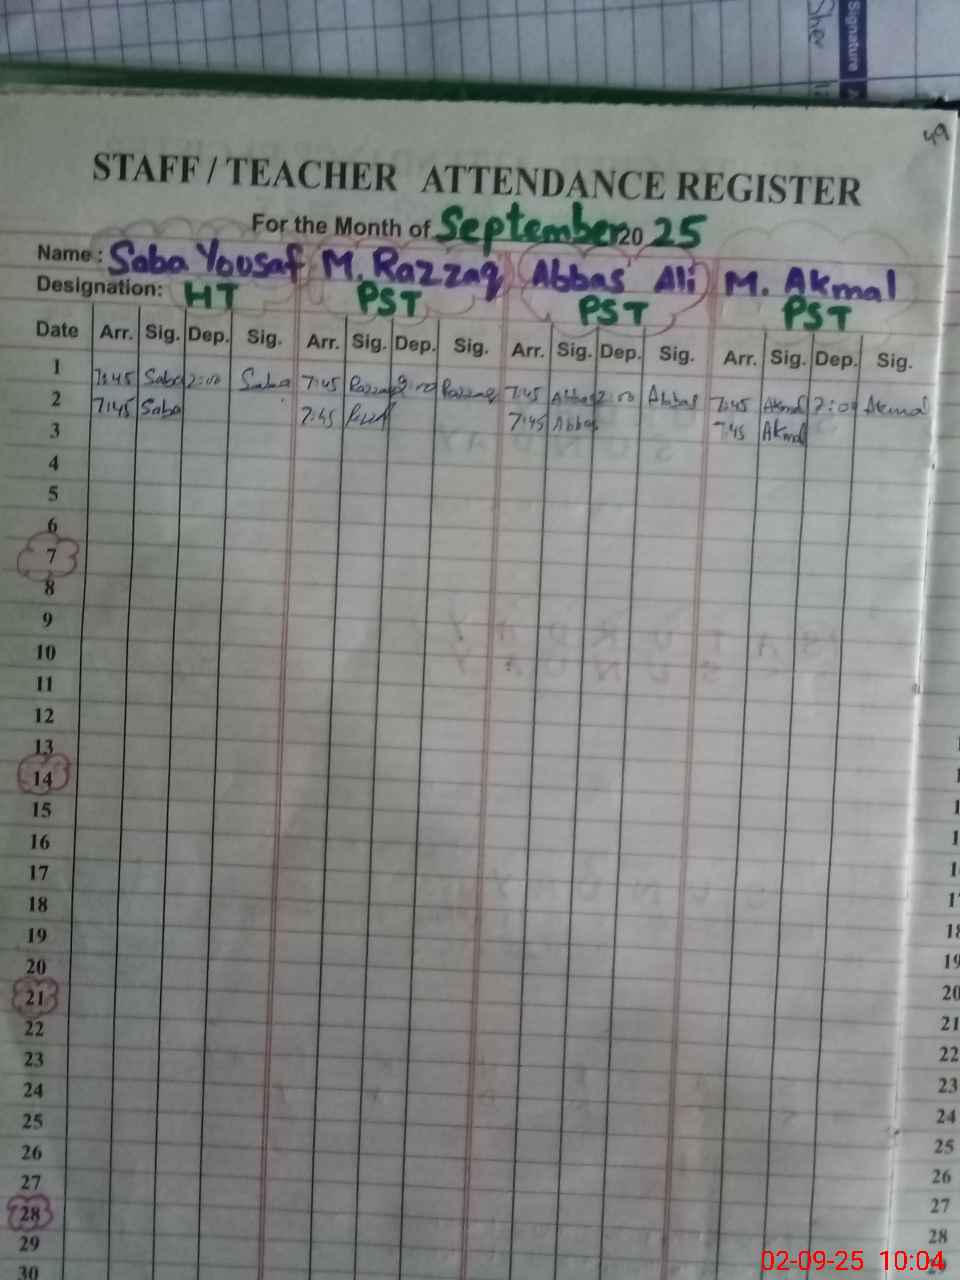 Signature
49
STAFF / TEACHER ATTENDANCE REGISTER
For the Month of September 20 25
Name : Saba Yousaf M. Razzaq Abbas Ali M. Akmal
Designation: HT PST PST PST
Date Arr. Sig. Dep. Sig. Arr. Sig. Dep. Sig. Arr. Sig. Dep. Sig. Arr. Sig. Dep. Sig.
1 7:45 Saba 2:00 Saba 7:45 Razzaq 2:00 Razzaq 7:45 Abbas 2:00 Abbas 7:45 Akmal 2:00 Akmal
2 7:45 Saba 7:45 7:45 Abbas 7:45 Akmal
3
4
5
6
7
8
9
10
11
12
13
14
15
16
17
18 18
19 19
20 20
21 21
22 22
23 23
24 24
25 25
26 26
27 27
28 28
29 29
30
02-09-25 10:04